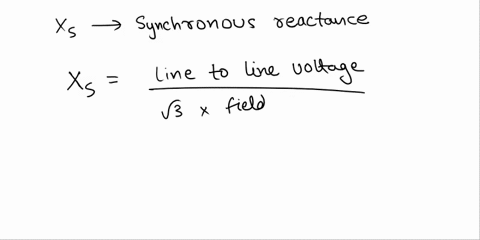 Xs → Synchronous reactance
Xs = line to line voltage
√3 x field